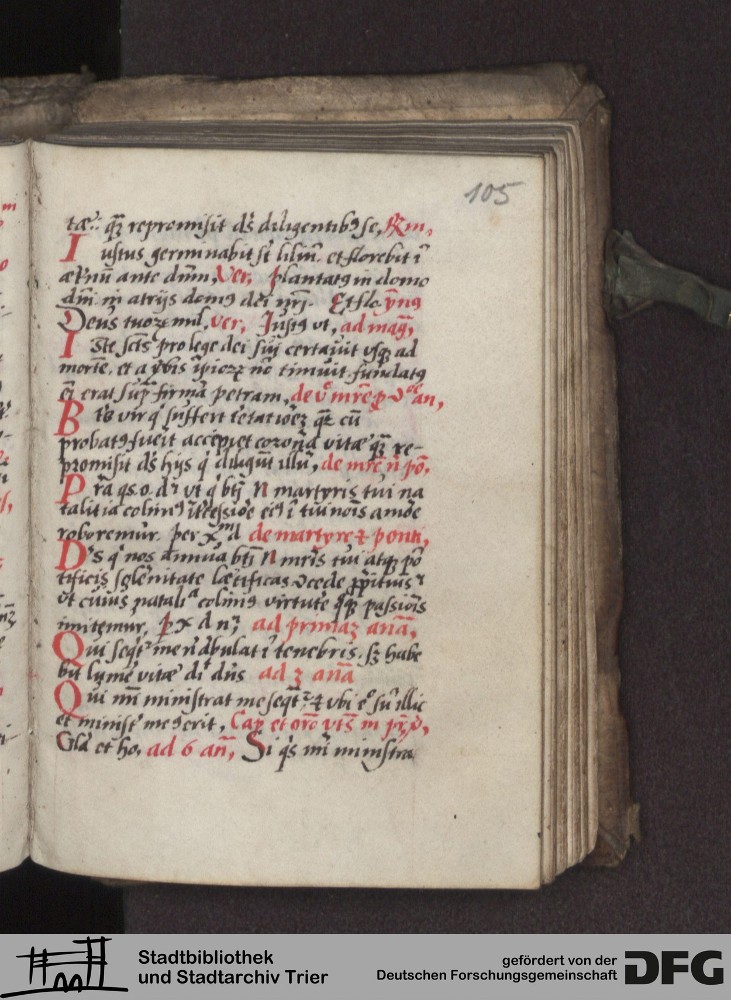 105
tæ: qꝫ repromisit ds diligentibꝰ se, Rm,
Iustus germinabit st lilium et florebit ī
æternū ante dnm, Ver, plantatꝰ in domo
dni in atrijs domꝰ dei nri. Et flo ymꝰ
Deus tuoꝝ mil, ver, Iustꝰ ut, ad mag,
Iste scts pro lege dei sui certauit usqꝫ ad
mortē, et a verbis ipioꝝ nō timuit fūdatꝰ
eī erat supra firmā petram, de
an,
Btus vir qui suffert
qm cū
probatꝰ fuerit accipiet coronā vitæ qꝫ re-
promisit ds hijs qui diligūt illū, de mre n po,
Pra qs o. ds ut qui bti N martyris tui na
talitia colimꝰ itcessioe eiꝰ ī tui nois amoe
roboremur. per xm d de martyre et ponti,
Ds qui nos annua bti N mris tui atqꝫ po
tificis solenitate lætificas ↄcede ppitius
ut cuius natalia colimꝰ virtutē qqꝫ passiois
imitemur, P x d n, ad primaꝫ anā,
Qui seqtr me nō abulat ī tenebris. sꝫ habe
bit lumē vitæ dicit dns ad 3 anā
Qui mi ministrat me seqtr et ubi ego sū illic
et minister meꝰ erit, Cap et oro vts in
Gla et ho, ad 6 an, Si qs mi ministra
Stadtbibliothek
und Stadtarchiv Trier
gefördert von der
Deutschen Forschungsgemeinschaft
DFG